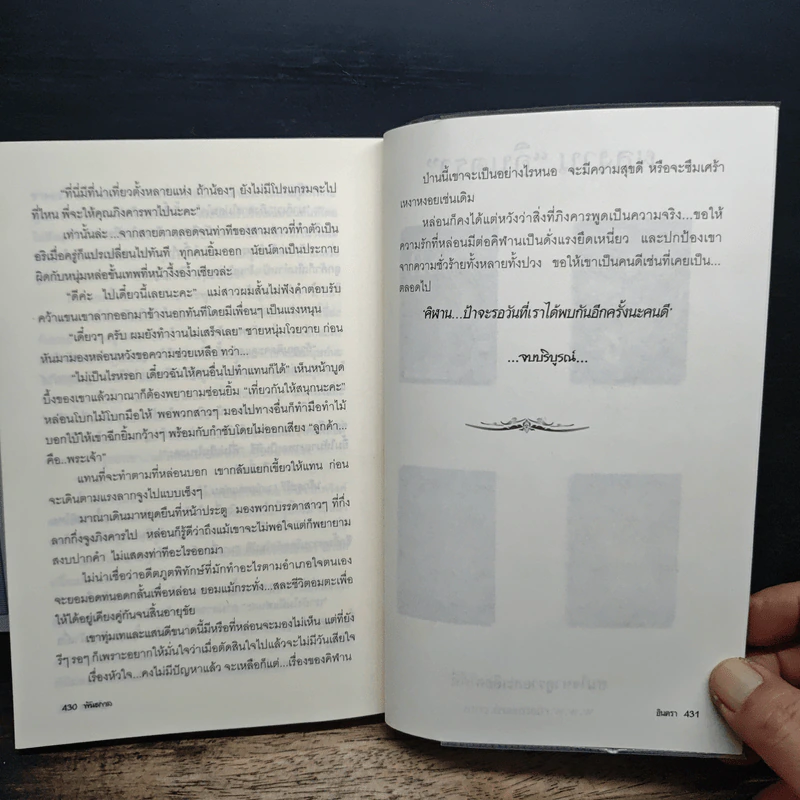 "ที่นี่มีที่น่าเที่ยวตั้งหลายแห่ง ถ้าน้องๆ ยังไม่มีโปรแกรมจะไป
ที่ไหน พี่จะให้คุณภิงคารพาไปนะคะ"
เท่านั้นล่ะ...จากสายตาตลอดจนท่าทีของสามสาวที่ทำตัวเป็น
อริเมื่อครู่ก็แปรเปลี่ยนไปทันที ทุกคนยิ้มออก นัยน์ตาเป็นประกาย
ผิดกับหนุ่มหล่อขั้นเทพที่หน้างิ้วงอง้ำเชียวล่ะ
"ดีค่ะ ไปเดี๋ยวนี้เลยนะคะ" แม่สาวผมสั้นไม่ฟังคำตอบรับ
คว้าแขนเขาลากออกมาข้างนอกทันทีโดยมีเพื่อนๆ เป็นแรงหนุน
"เดี๋ยวๆ ครับ ผมยังทำงานไม่เสร็จเลย" ชายหนุ่มโวยวาย ก่อน
หันมามองหล่อนหวังขอความช่วยเหลือ ทว่า...
"ไม่เป็นไรหรอก เดี๋ยวฉันให้คนอื่นไปทำแทนก็ได้" เห็นหน้าบูด
บึ้งของเขาแล้วมาณาก็ต้องพยายามซ่อนยิ้ม "เที่ยวกันให้สนุกนะคะ"
หล่อนโบกไม้โบกมือให้ พอพวกสาวๆ มองไปทางอื่นก็ทำมือทำไม้
บอกใบ้ให้เขาฉีกยิ้มกว้างๆ พร้อมกับกำชับโดยไม่ออกเสียง "ลูกค้า...
คือ..พระเจ้า"
แทนที่จะทำตามที่หล่อนบอก เขากลับแยกเขี้ยวให้แทน ก่อน
จะเดินตามแรงลากจูงไปแบบเซ็งๆ
มาณาเดินมาหยุดยืนที่หน้าประตู มองพวกบรรดาสาวๆ ที่กึ่ง
ลากกึ่งจูงภิงคารไป หล่อนก็รู้ดีว่าถึงแม้เขาจะไม่พอใจแต่ก็พยายาม
สงบปากคำ ไม่แสดงท่าทีอะไรออกมา
ไม่น่าเชื่อว่าอดีตภูตพิทักษ์ที่มักทำอะไรตามอำเภอใจตนเอง
จะยอมอดทนอดกลั้นเพื่อหล่อน ยอมแม้กระทั่ง...สละชีวิตอมตะเพื่อ
ให้ได้อยู่เคียงคู่กันจนสิ้นอายุขัย
เขาทุ่มเทและแสนดีขนาดนี้มีหรือที่หล่อนจะมองไม่เห็น แต่ที่ยัง
รีๆ รอๆ ก็เพราะอยากให้มั่นใจว่าเมื่อตัดสินใจไปแล้วจะไม่มีวันเสียใจ
เรื่องหัวใจ...คงไม่มีปัญหาแล้ว จะเหลือก็แต่...เรื่องของคิฬาน
430
ป่านนี้เขาจะเป็นอย่างไรหนอ จะมีความสุขดี หรือจะซึมเศร้า
เหงาหงอยเช่นเดิม
หล่อนก็คงได้แต่หวังว่าสิ่งที่ภิงคารพูดเป็นความจริง...ขอให้
ความรักที่หล่อนมีต่อคิฬานเป็นดั่งแรงยึดเหนี่ยว และปกป้องเขา
จากความชั่วร้ายทั้งหลายทั้งปวง ขอให้เขาเป็นคนดีเช่นที่เคยเป็น...
ตลอดไป
'คิฬาน...ป้าจะรอวันที่เราได้พบกันอีกครั้งนะคนดี'
...จบบริบูรณ์...
อินตรา 431